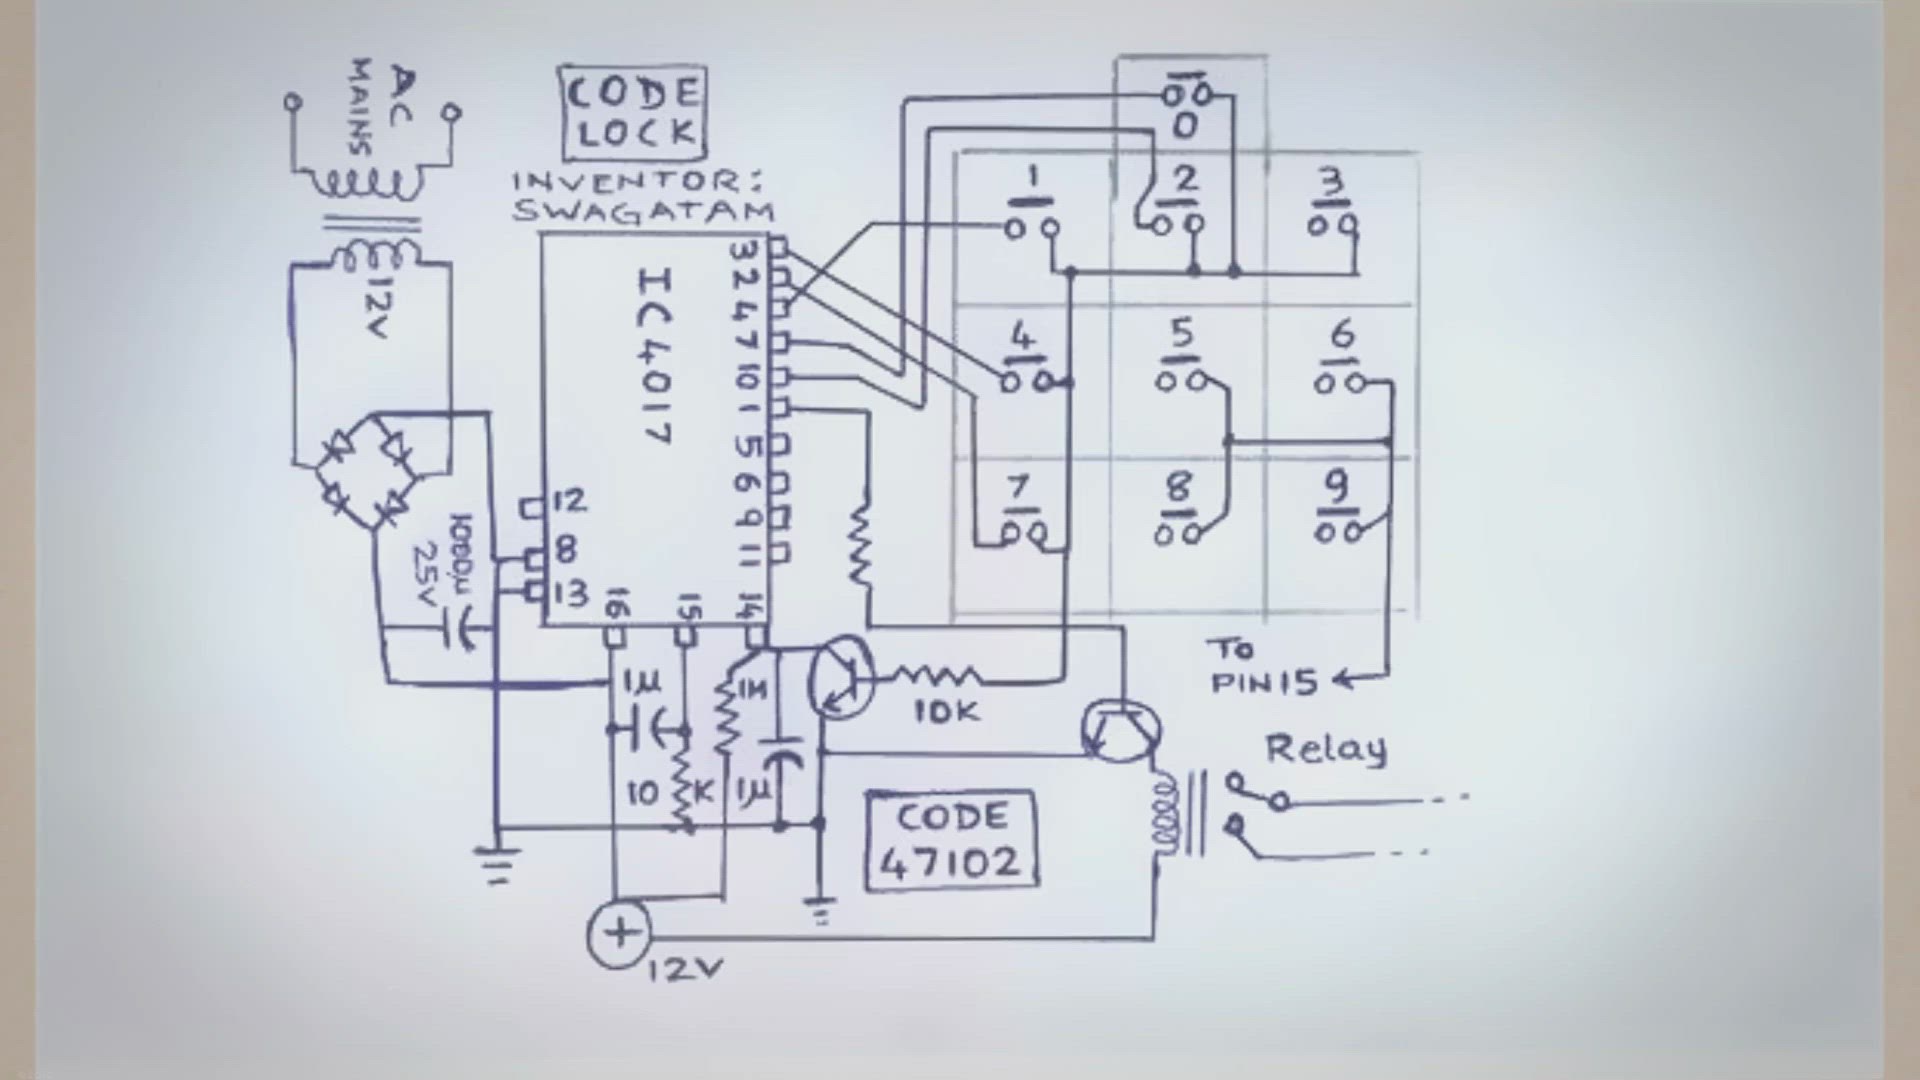 AC
MAINS
CODE
LOCK
INVENTOR:
SWAGATAM
12V
IC 4017
3
2
4
7
10
1
5
6
9
11
12
8
13
16
15
14
1000µ
25V
1µ
1M
10K
1µ
10K
12V
CODE
47102
0
1
2
3
4
5
6
7
8
9
To
PIN15
Relay